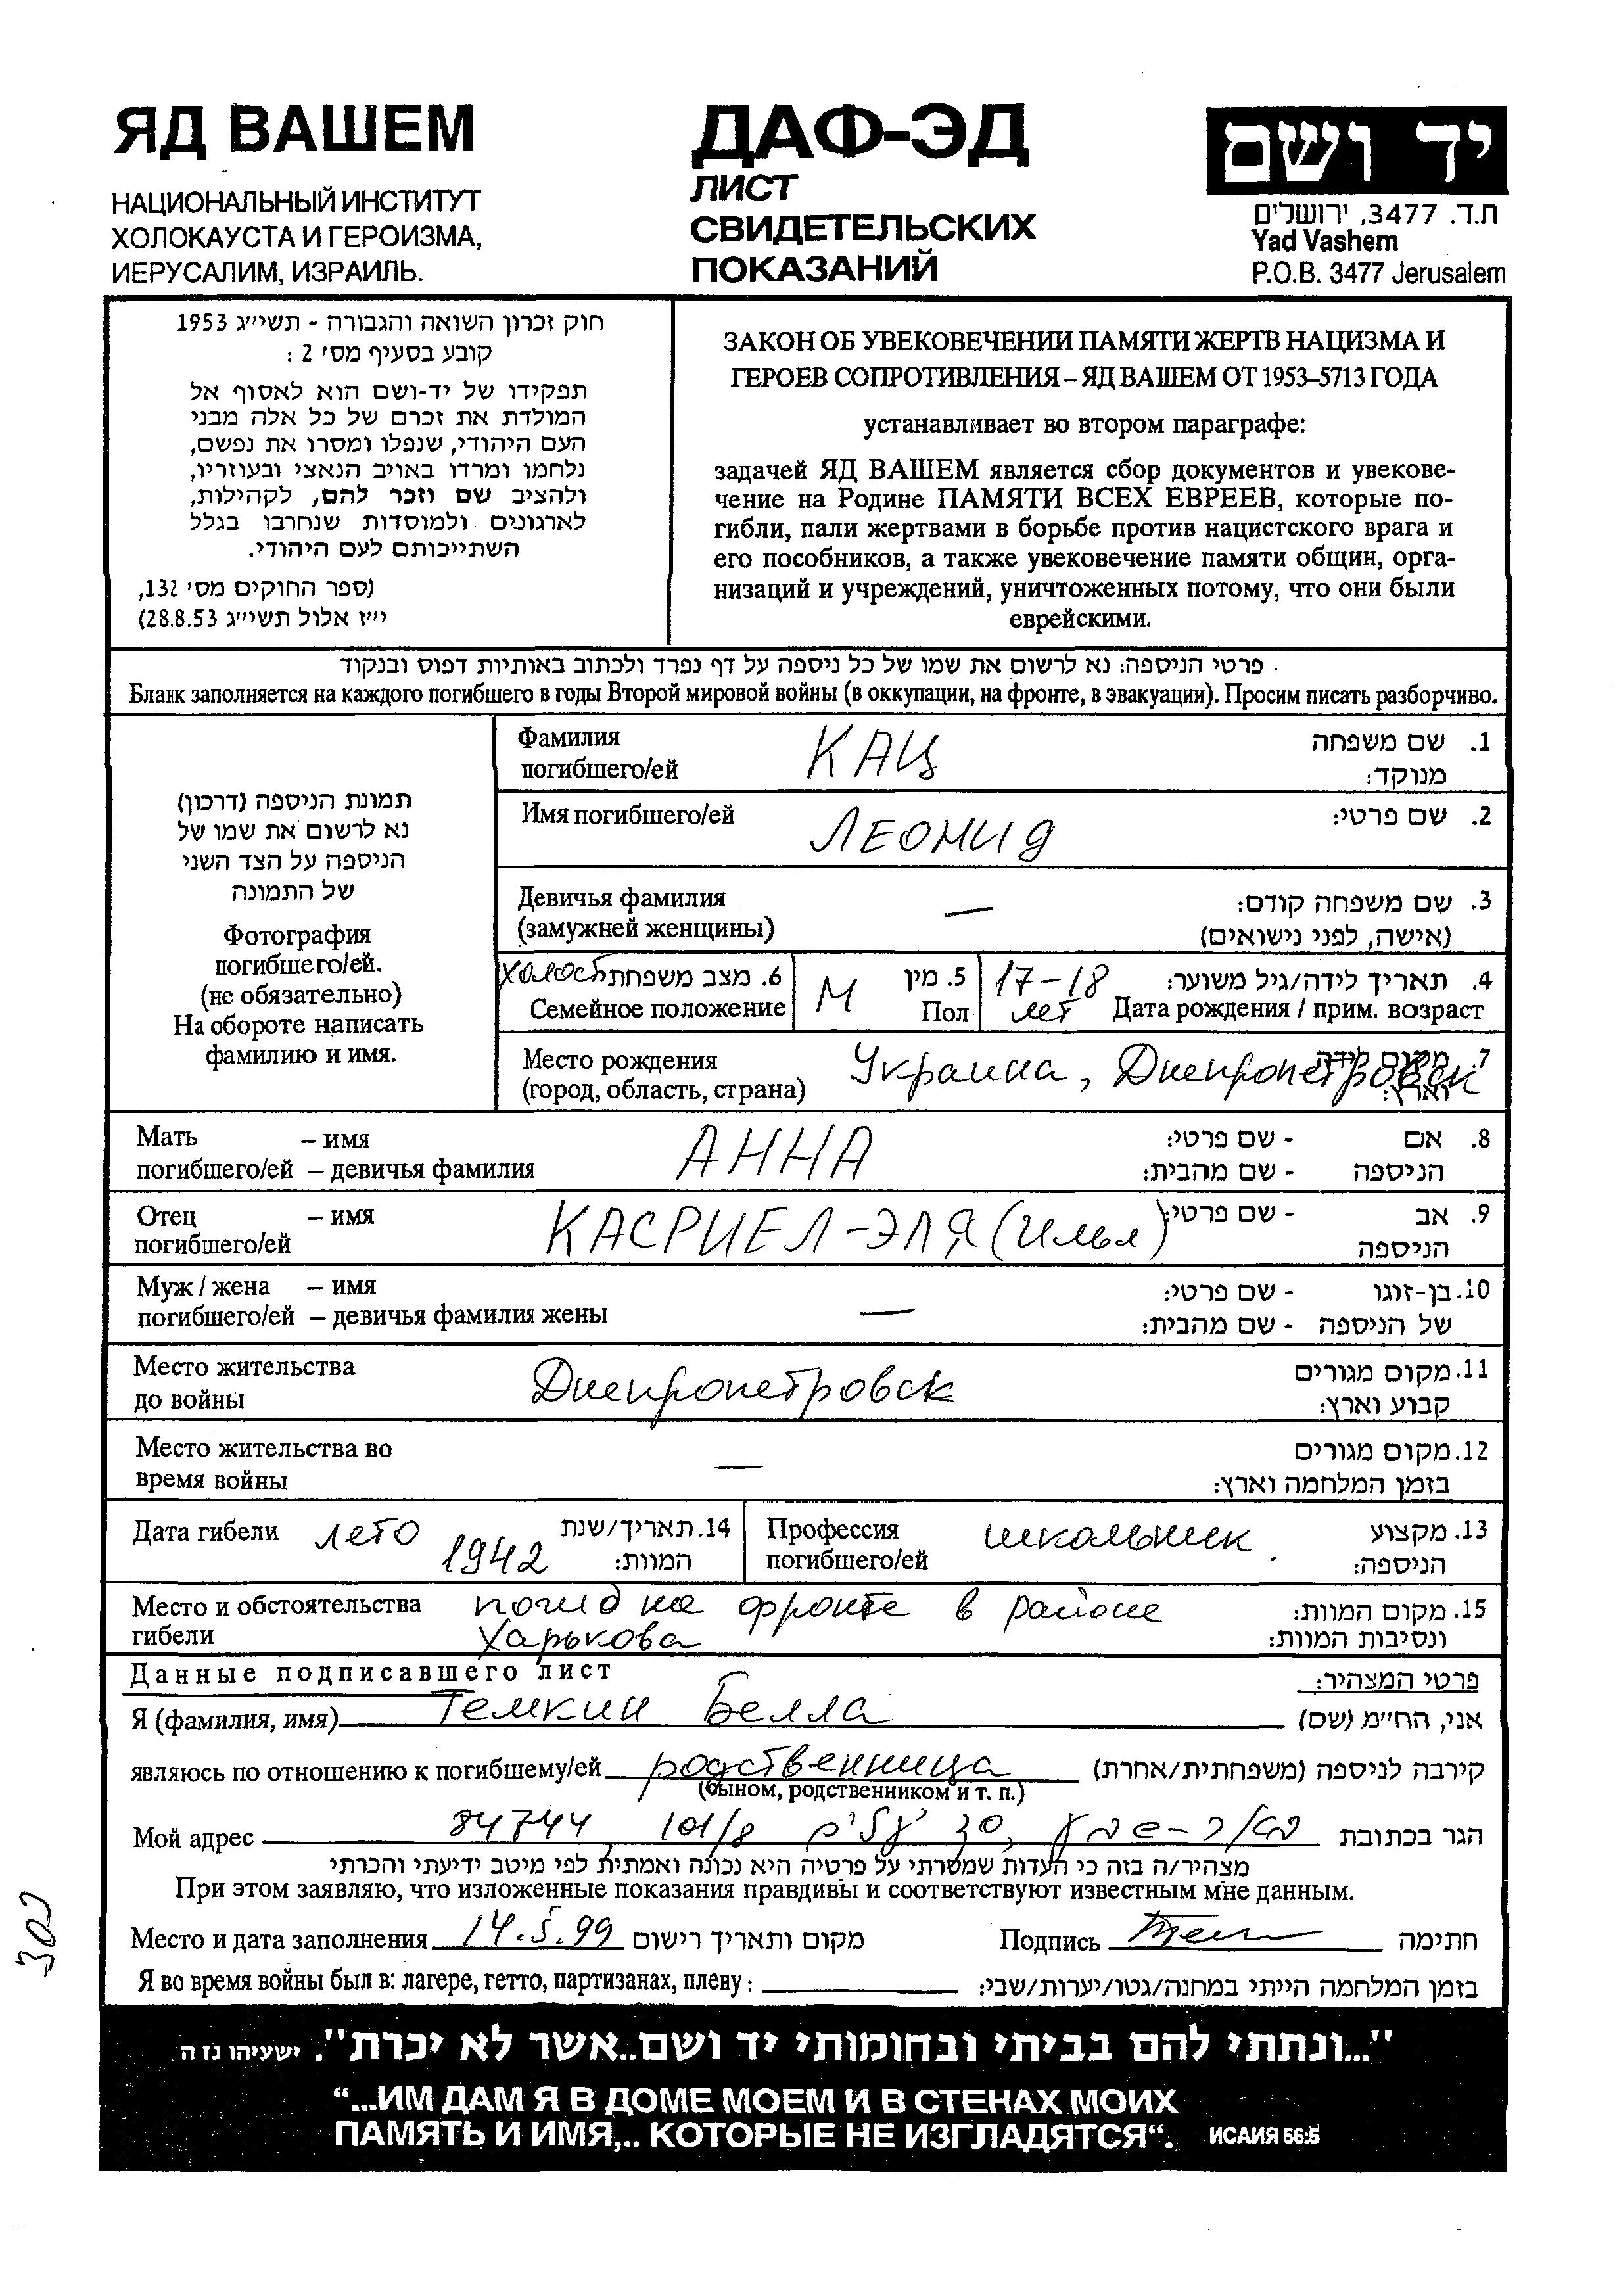 ЯД ВАШЕМ
НАЦИОНАЛЬНЫЙ ИНСТИТУТ
ХОЛОКАУСТА И ГЕРОИЗМА,
ИЕРУСАЛИМ, ИЗРАИЛЬ.
ДАФ-ЭД
ЛИСТ
СВИДЕТЕЛЬСКИХ
ПОКАЗАНИЙ
יד ושם
ת.ד. 3477, ירושלים
Yad Vashem
P.O.B. 3477 Jerusalem
חוק זכרון השואה והגבורה - תשי״ג 1953
קובע בסעיף מס׳ 2 :
תפקידו של יד-ושם הוא לאסוף אל
המולדת את זכרם של כל אלה מבני
העם היהודי, שנפלו ומסרו את נפשם,
נלחמו ומרדו באויב הנאצי ובעוזריו,
ולהציב שם וזכר להם, לקהילות,
לארגונים ולמוסדות שנחרבו בגלל
השתייכותם לעם היהודי.
(ספר החוקים מס׳ 132,
י״ז אלול תשי״ג 28.8.53)
ЗАКОН ОБ УВЕКОВЕЧЕНИИ ПАМЯТИ ЖЕРТВ НАЦИЗМА И
ГЕРОЕВ СОПРОТИВЛЕНИЯ – ЯД ВАШЕМ ОТ 1953–5713 ГОДА
устанавливает во втором параграфе:
задачей ЯД ВАШЕМ является сбор документов и увекове-
чение на Родине ПАМЯТИ ВСЕХ ЕВРЕЕВ, которые по-
гибли, пали жертвами в борьбе против нацистского врага и
его пособников, а также увековечение памяти общин, орга-
низаций и учреждений, уничтоженных потому, что они были
еврейскими.
פרטי הניספה: נא לרשום את שמו של כל ניספה על דף נפרד ולכתוב באותיות דפוס ובנקוד
Бланк заполняется на каждого погибшего в годы Второй мировой войны (в оккупации, на фронте, в эвакуации). Просим писать разборчиво.
תמונת הניספה (דרכון)
נא לרשום את שמו של
הניספה על הצד השני
של התמונה
Фотография
погибшего/ей.
(не обязательно)
На обороте написать
фамилию и имя.
Фамилия КАЦ 1. שם משפחה
погибшего/ей מנוקד:
Имя погибшего/ей ЛЕОНИД 2. שם פרטי:
Девичья фамилия — 3. שם משפחה קודם:
(замужней женщины) (אישה, לפני נישואים)
холост 6. מצב משפחתי
Семейное положение
М 5. מין
Пол
17-18 4. תאריך לידה/גיל משוער:
лет Дата рождения / прим. возраст
Место рождения Украина, Днепропетровск 7. מקום לידה
(город, область, страна) וארץ:
Мать – имя АННА 8. אם - שם פרטי:
погибшего/ей – девичья фамилия הניספה - שם מהבית:
Отец – имя КАСРИЕЛ-ЭЛЯ (Илья) 9. אב - שם פרטי:
погибшего/ей הניספה
Муж / жена – имя — 10. בן-זוגו - שם פרטי:
погибшего/ей – девичья фамилия жены של הניספה - שם מהבית:
Место жительства Днепропетровск 11. מקום מגורים
до войны קבוע וארץ:
Место жительства во — 12. מקום מגורים
время войны בזמן המלחמה וארץ:
Дата гибели лето 1942 14. תאריך/שנת
המוות:
Профессия школьник 13. מקצוע
погибшего/ей הניספה:
Место и обстоятельства погиб на фронте в районе 15. מקום המוות:
гибели Харькова ונסיבות המוות:
Данные подписавшего лист פרטי המצהיר:
Я (фамилия, имя) Темкин Белла אני, הח״מ (שם)
являюсь по отношению к погибшему/ей родственница קירבה לניספה (משפחתית/אחרת)
(сыном, родственником и т. п.)
Мой адрес 84744 101/8 באר-שבע הגר בכתובת
מצהיר/ה בזה כי העדות שמסרתי על פרטיה היא נכונה ואמתית לפי מיטב ידיעתי והכרתי
При этом заявляю, что изложенные показания правдивы и соответствуют известным мне данным.
Место и дата заполнения 14.5.99 מקום ותאריך רישום Подпись חתימה
Я во время войны был в: лагере, гетто, партизанах, плену: בזמן המלחמה הייתי במחנה/גטו/יערות/שבי:
302
"...ונתתי להם בביתי ובחומותי יד ושם..אשר לא יכרת". ישעיהו נז ה
“...ИМ ДАМ Я В ДОМЕ МОЕМ И В СТЕНАХ МОИХ
ПАМЯТЬ И ИМЯ,.. КОТОРЫЕ НЕ ИЗГЛАДЯТСЯ“. ИСАИЯ 56:5